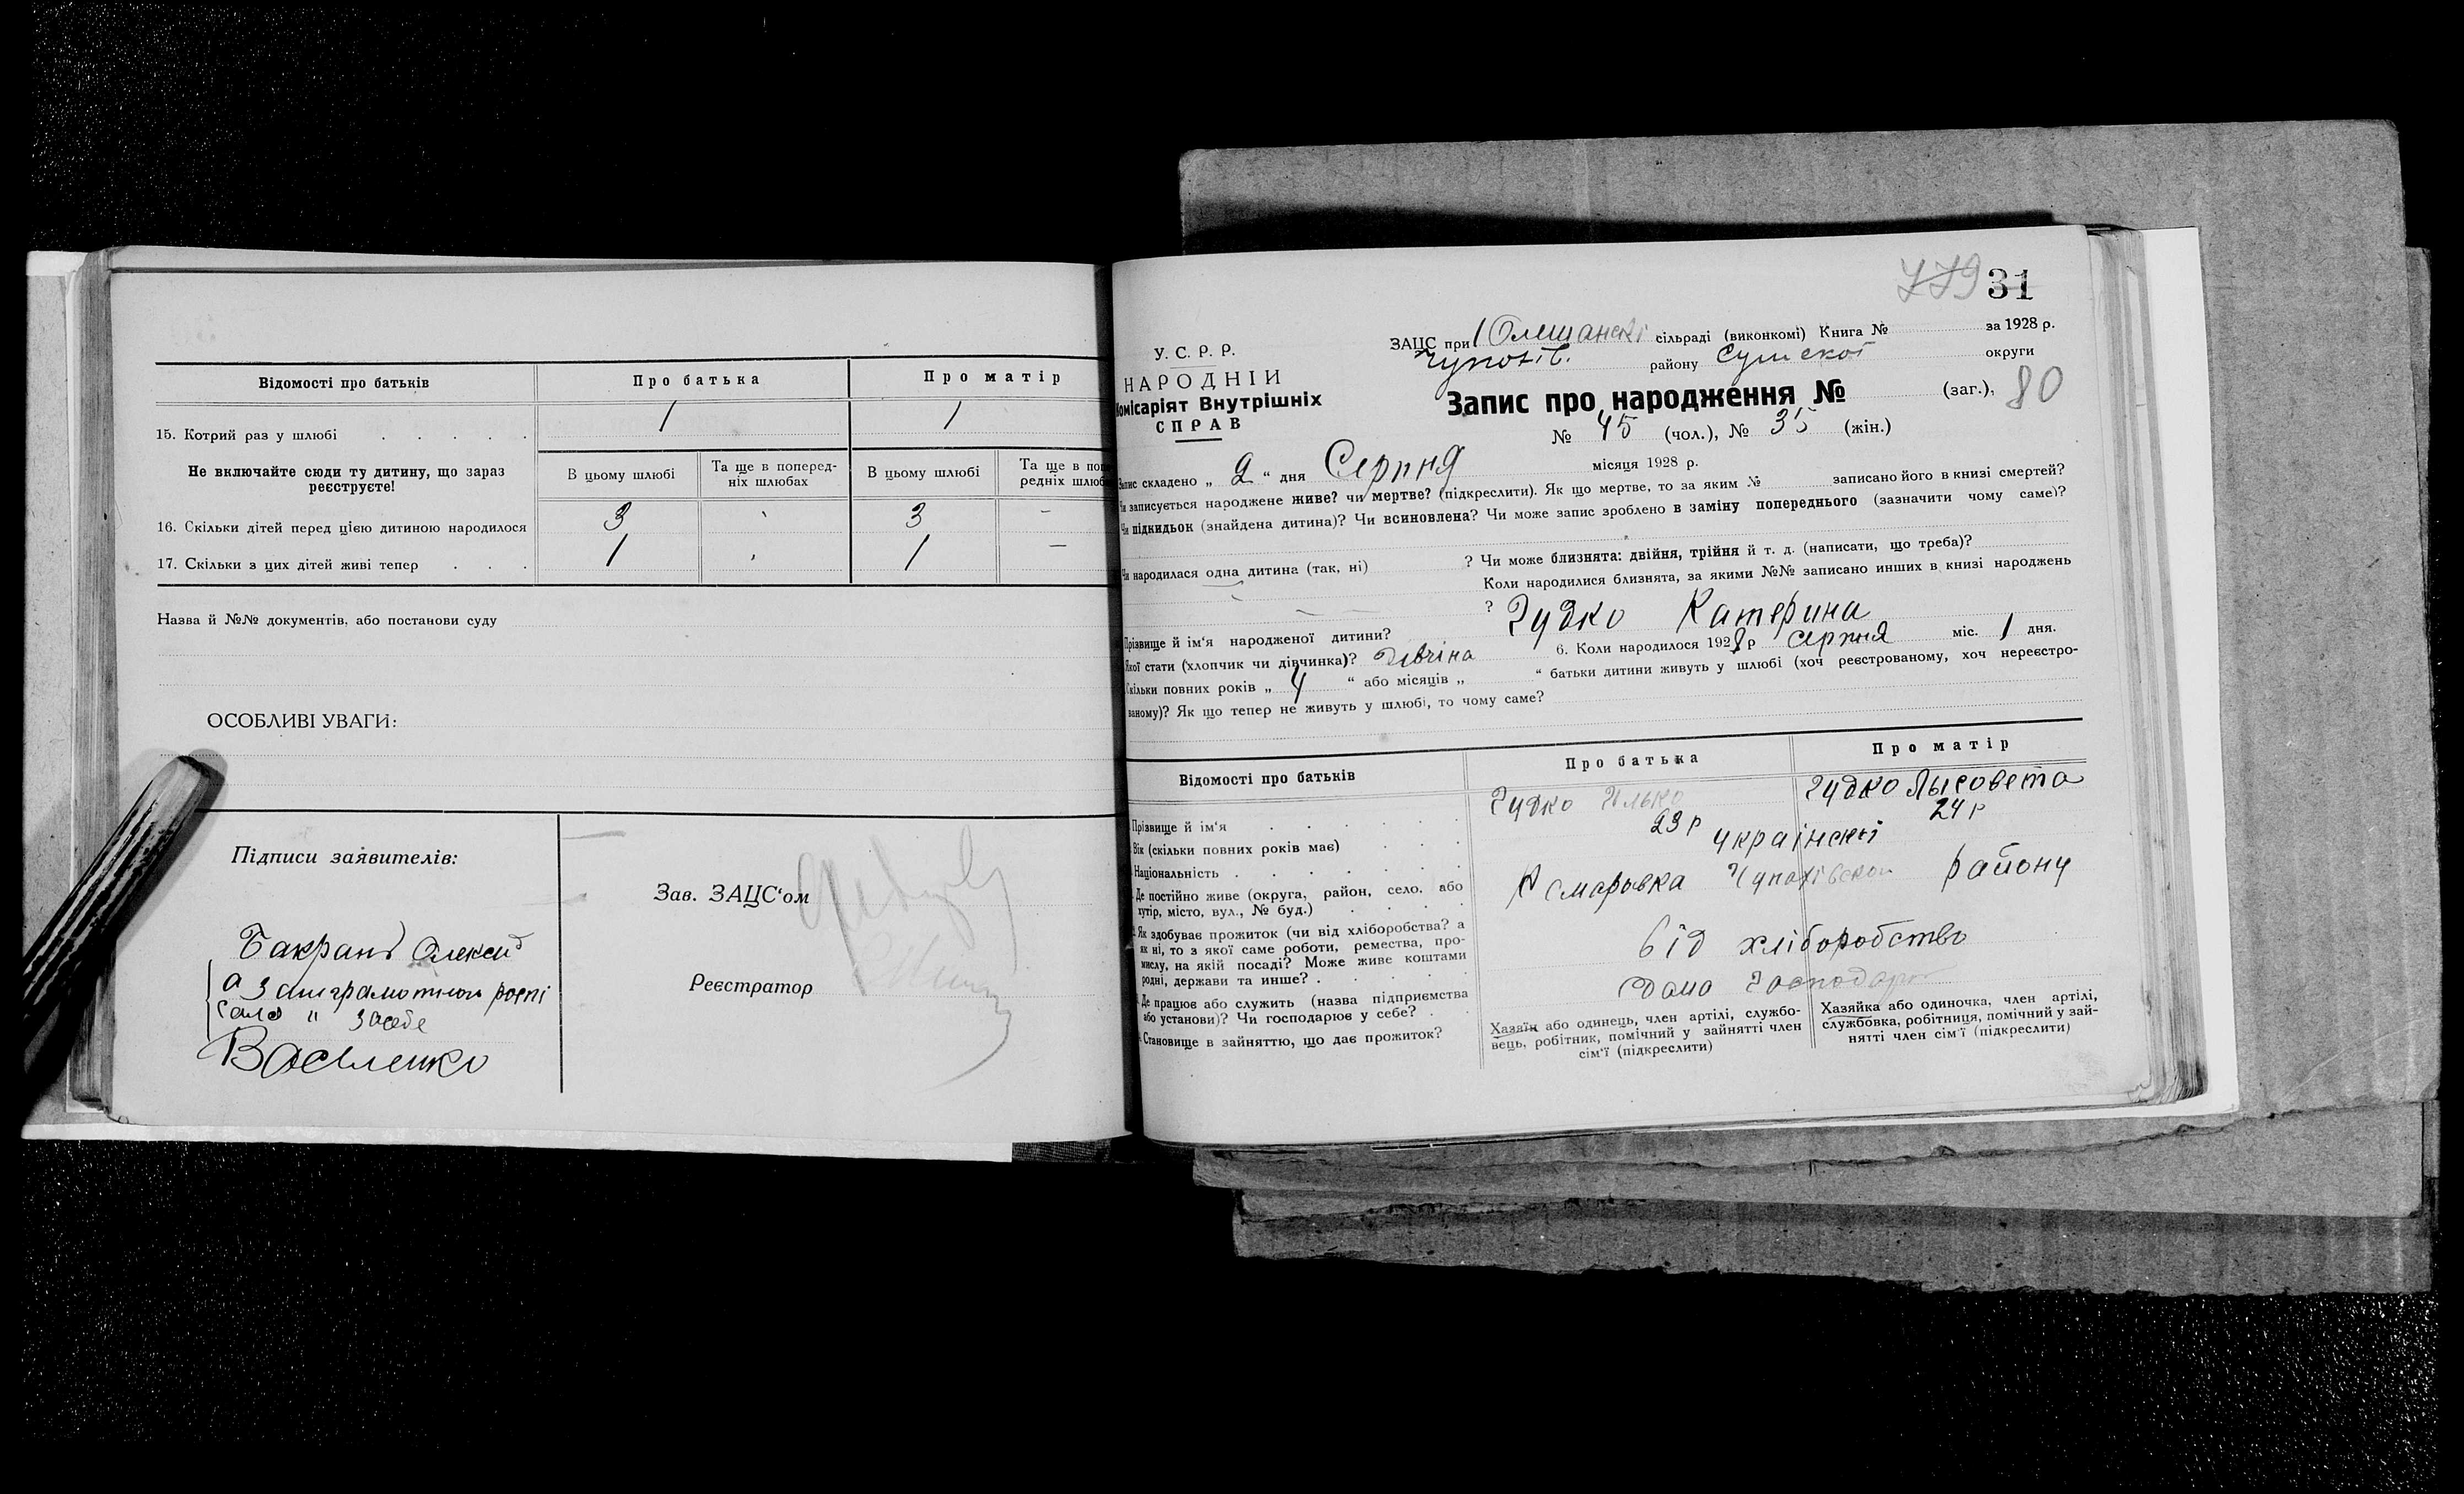 Відомості про батьків
Про батька
Про матір
15. Котрий раз у шлюбі . . . . .
1
1
Не включайте сюди ту дитину, що зараз реєструєте!
В цьому шлюбі
Та ще в поперед-
ніх шлюбах
В цьому шлюбі
Та ще в
редніх
16. Скільки дітей перед цією дитиною народилося
3
3
—
17. Скільки з цих дітей живі тепер . . .
1
1
—
Назва й №№ документів, або постанови суду
ОСОБЛИВІ УВАГИ:
Підписи заявителів:
Зав. ЗАЦС‘ом
Реєстратор
Василенко
779 31
У. С. Р. Р.
НАРОДНІЙ
Комісаріят Внутрішніх
СПРАВ
ЗАЦС при 1 Олешанскі сільраді (виконкомі) Книга № за 1928 р.
району Сумскої округи
Запис про народження № (заг.), 80
№ 45 (чол.), № 35 (жін.)
Запис складено „ 2 “ дня Серпня місяця 1928 р.
Чи записується народжене живе? чи мертве? (підкреслити). Як що мертве, то за яким № записано його в книзі смертей?
Чи підкидьок (знайдена дитина)? Чи всиновлена? Чи може запис зроблено в заміну попереднього (зазначити чому саме)?
Чи народилася одна дитина (так, ні) ? Чи може близнята: двійня, трійня й т. д. (написати, що треба)?
Коли народилися близнята, за якими №№ записано инших в книзі народжень
?
Прізвище й ім‘я народженої дитини? Гудко Катерина
Якої стати (хлопчик чи дівчинка)? Дівчіна 6. Коли народилося 1928 р серпня міс. 1 дня.
Скільки повних років „ 4 “ або місяців „ “ батьки дитини живуть у шлюбі (хоч реєстрованому, хоч нереєстро-
ваному)? Як що тепер не живуть у шлюбі, то чому саме?
Відомості про батьків
Про батька
Про матір
Прізвище й ім‘я . . . . .
Гудко Илько
Гудко Лысовета
Вік (скільки повних років має) . . .
23 р
24 р
Національність . . . . . .
українскі
Де постійно живе (округа, район, село, або
хутір, місто, вул., № буд.) . . . .
району
Як здобуває прожиток (чи від хліборобства? а
як ні, то з якої саме роботи, ремества, про-
мислу, на якій посаді? Може живе коштами
родні, держави та инше? . . . . .
від хліборобство
Де працює або служить (назва підприємства
або установи)? Чи господарює у себе? . .
Становище в зайняттю, що дає прожиток?
Хазяїн або одинець, член артілі, службо-
вець, робітник, помічний у зайнятті член
сім‘ї (підкреслити)
Хазяйка або одиночка, член артілі,
службовка, робітниця, помічний у зай-
нятті член сім‘ї (підкреслити)